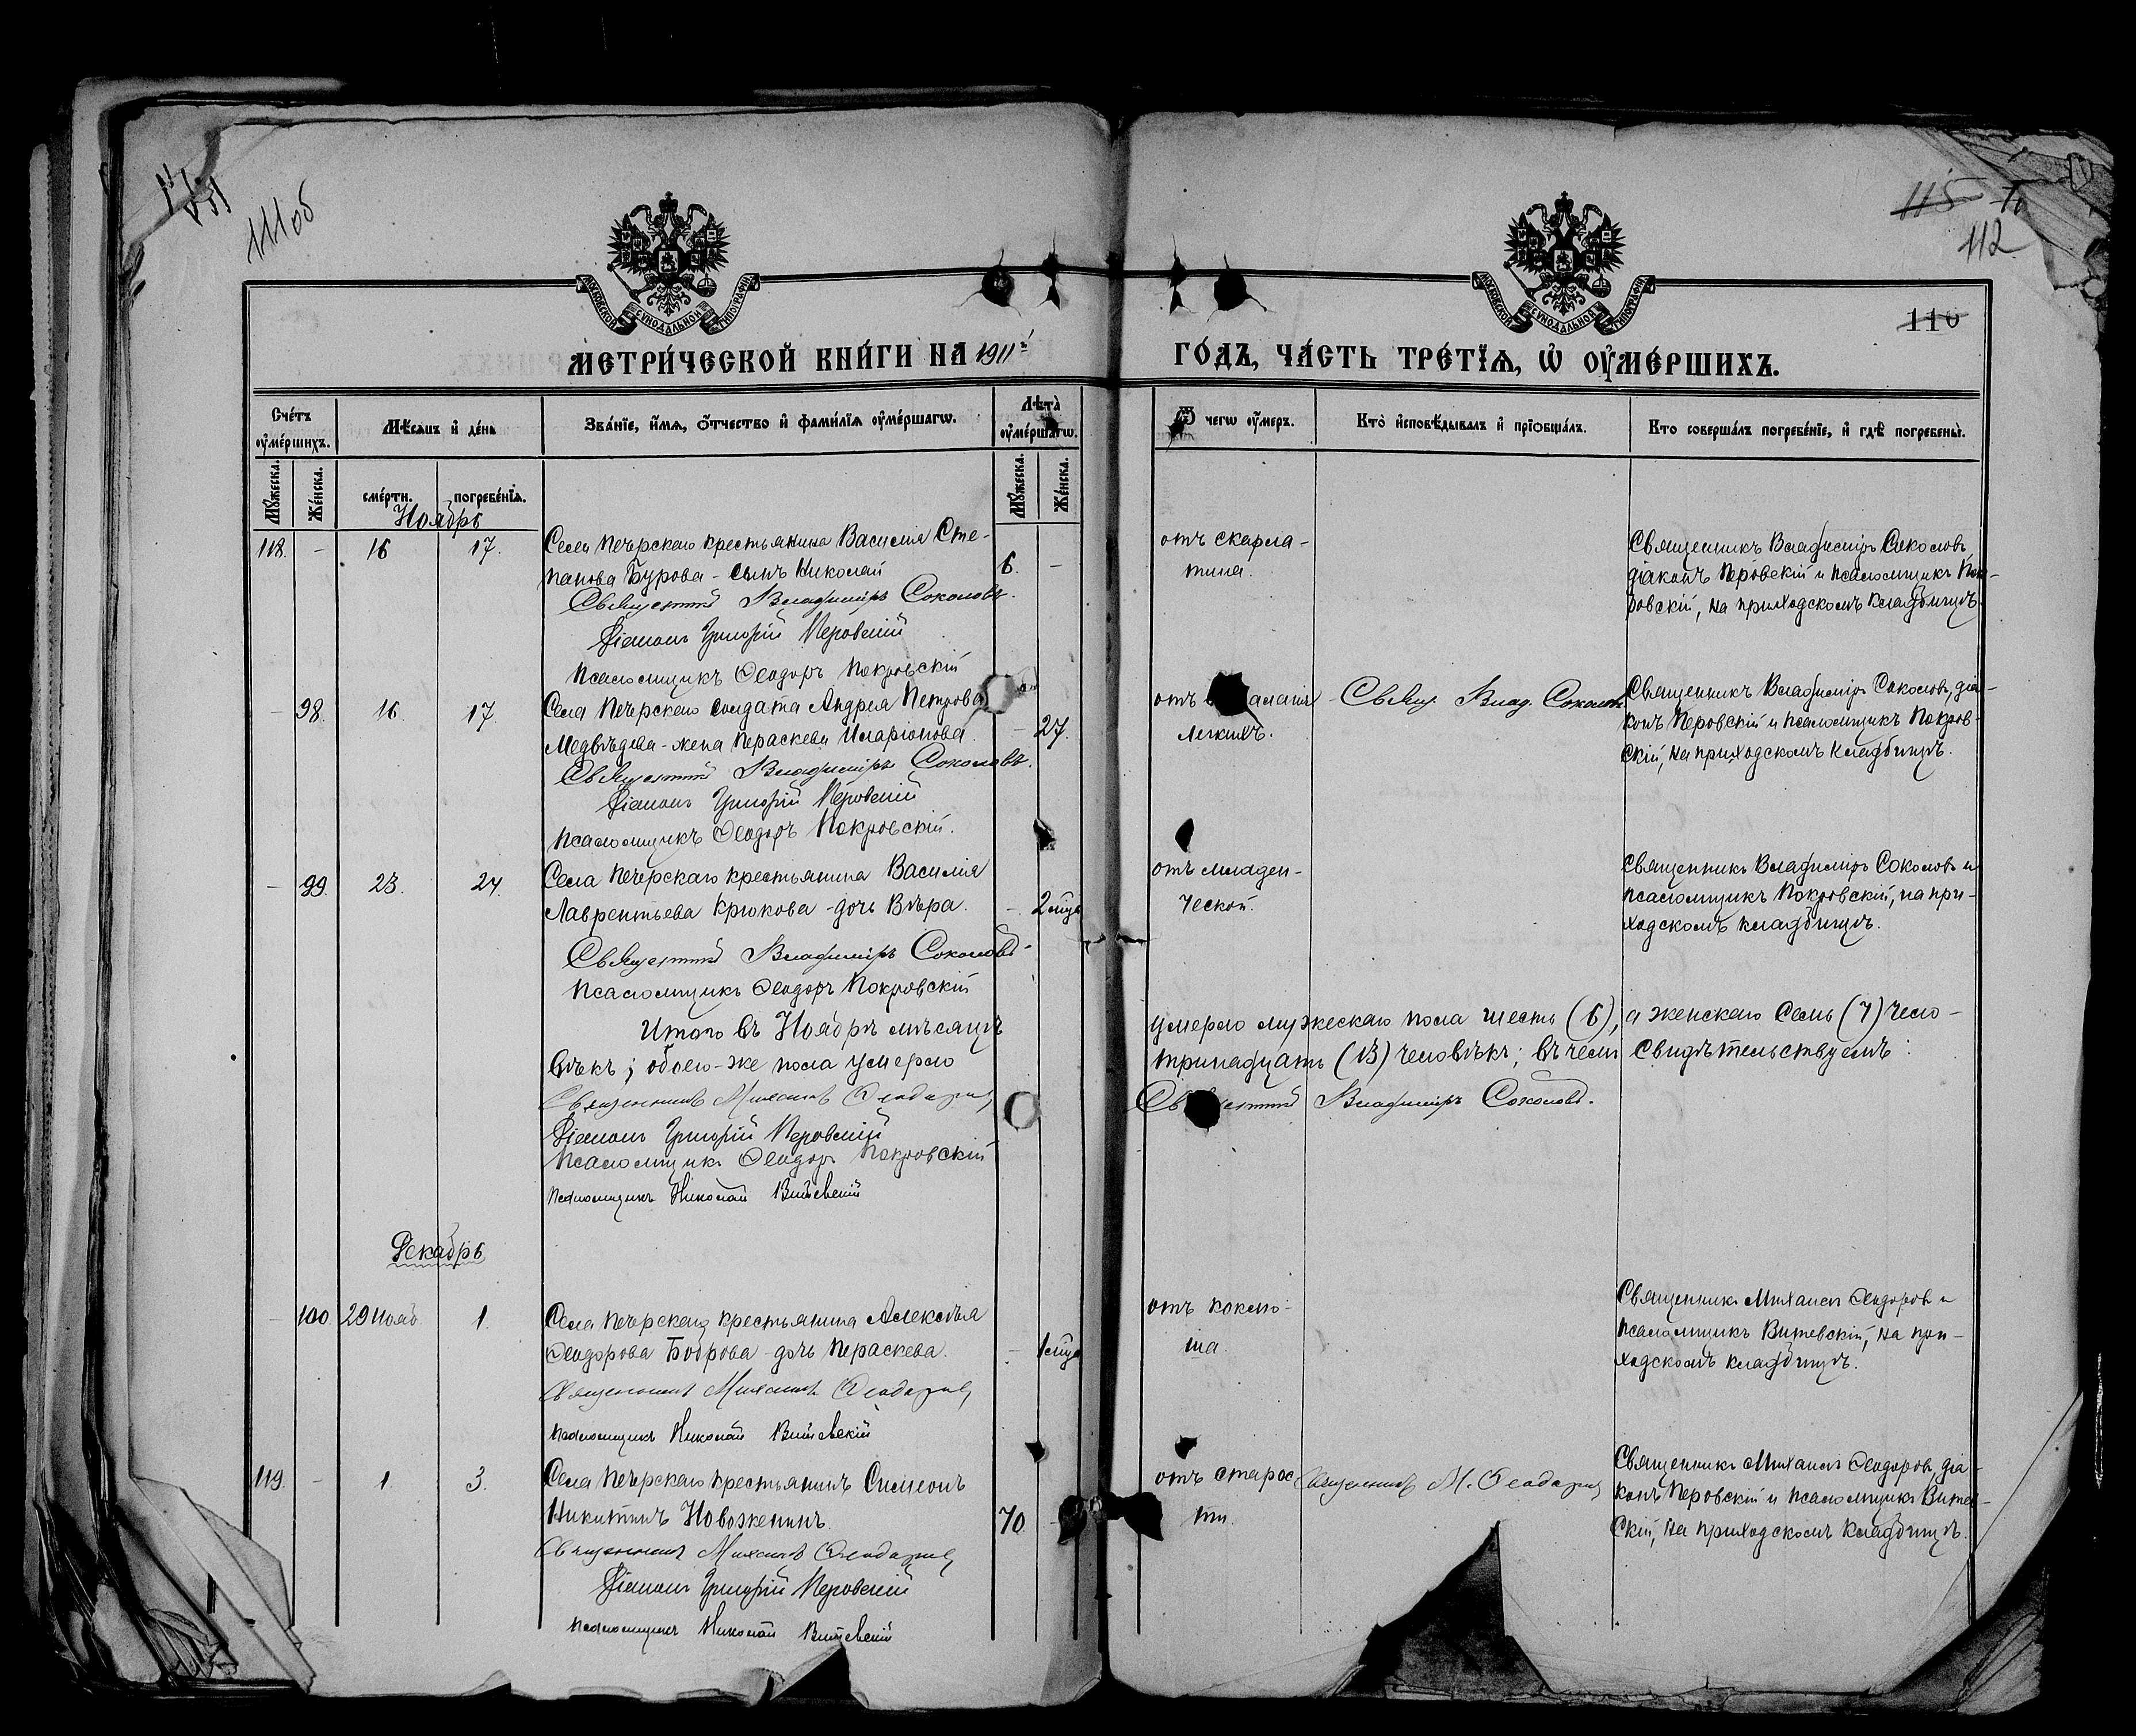 111 об
115
112
110
МОСКОВСКОЙ СУНОДАЛЬНОЙ ТИПОГРАФІИ
МОСКОВСКОЙ СУНОДАЛЬНОЙ ТИПОГРАФІИ
МЕТРИ́ЧЕСКОЙ КНИ́ГИ НА 1911й
ГО́ДЪ, ЧА́СТЬ ТРЕ́ТІѦ, Ѡ҆ ОУ҆МЕ́РШИХЪ.
Сче́тъ оу҆ме́ршихъ.
Мѣ́сяцъ и҆ де́нь
Зва́нїе, и҆́мѧ, ѻ҆́тчество и҆ фами́лїѧ оу҆ме́ршагѡ.
Лѣта̀ оу҆ме́ршагѡ.
Ѿ чегѡ̀ оу҆́меръ.
Кто̀ и҆сповѣ́дывалъ и҆ прїобща́лъ.
Кто̀ соверша́лъ погребе́нїе, и҆ гдѣ̀ погребены̀.
Мꙋ́жеска.
Же́нска.
сме́рти.
погребе́нїѧ.
Мꙋ́жеска.
Же́нска.
Ноябрь
118. - 16 17. Села Печерскаго крестьянина Василія Сте-
панова Бурова - сынъ Николай 6. -
Священникъ Владиміръ Соколовъ.
Діаконъ Григорій Перовскій
Псаломщикъ Ѳеодоръ Покровскій
отъ скарла-
тина.
Священникъ Владиміръ Соколовъ,
діаконъ Перовскій и псаломщикъ Пок-
ровскій, на приходскомъ кладбищѣ.
- 98. 16. 17. Села Печерскаго солдата Андрея Петрова
Медвѣдева - жена Параскева Иларіонова. - 27.
Священникъ Владиміръ Соколовъ.
Діаконъ Григорій Перовскій
Псаломщикъ Ѳеодоръ Покровскій.
отъ аленія
легкихъ.
Свящ. Влад. Соколовъ
Священникъ Владиміръ Соколовъ, діа-
конъ Перовскій и псаломщикъ Покров-
скій, на приходскомъ кладбищѣ.
- 99. 23. 24. Села Печерскаго крестьянина Василія
Лаврентьева Крюкова - дочь Вѣра. - 2 мца
Священникъ Владиміръ Соколовъ
Псаломщикъ Ѳеодоръ Покровскій
отъ младен-
ческой.
Священникъ Владиміръ Соколовъ и
псаломщикъ Покровскій, на при-
ходскомъ кладбищѣ.
Итого въ Ноябрѣ мѣсяцѣ умерло мужескаго пола шесть (6), а женскаго семь (7) чело-
вѣкъ; обоего-же пола умерло тринадцать (13) человѣкъ; въ чемъ свидѣтельствуемъ:
Священникъ Михаилъ Ѳеодоровъ
Священникъ Владиміръ Соколовъ.
Діаконъ Григорій Перовскій
Псаломщикъ Ѳеодоръ Покровскій
Псаломщикъ Николай Витевскій
Декабрь
- 100 29 нояб. 1. Села Печерскаго крестьянина Алексѣя
Ѳеодорова Боброва - дочь Параскева. - 1 мца
Священникъ Михаилъ Ѳеодоровъ
Псаломщикъ Николай Витевскій
отъ коклю-
ша.
Священникъ Михаилъ Ѳеодоровъ и
псаломщикъ Витевскій, на при-
ходскомъ кладбищѣ.
119. - 1. 3. Села Печерскаго крестьянинъ Симеонъ
Никитинъ Новоженинъ. 70 -
Священникъ Михаилъ Ѳеодоровъ
Діаконъ Григорій Перовскій
Псаломщикъ Николай Витевскій
отъ старос-
ти.
Священникъ М. Ѳеодоровъ
Священникъ Михаилъ Ѳеодоровъ, діа-
конъ Перовскій и псаломщикъ Витев-
скій, на приходскомъ кладбищѣ.